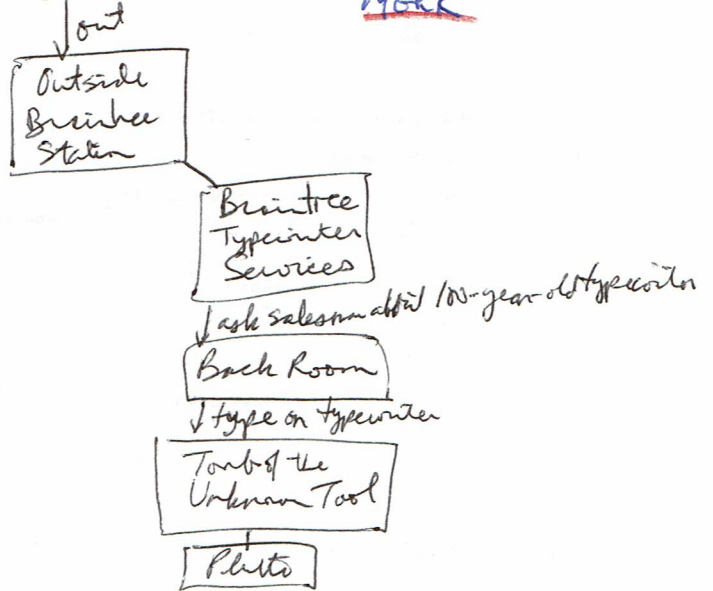 out
York
Outside
Braintree
Station
Braintree
Typewriter
Services
ask salesman about 100-year-old typewriter
Back Room
type on typewriter
Tomb of the
Unknown Tool
Pluto